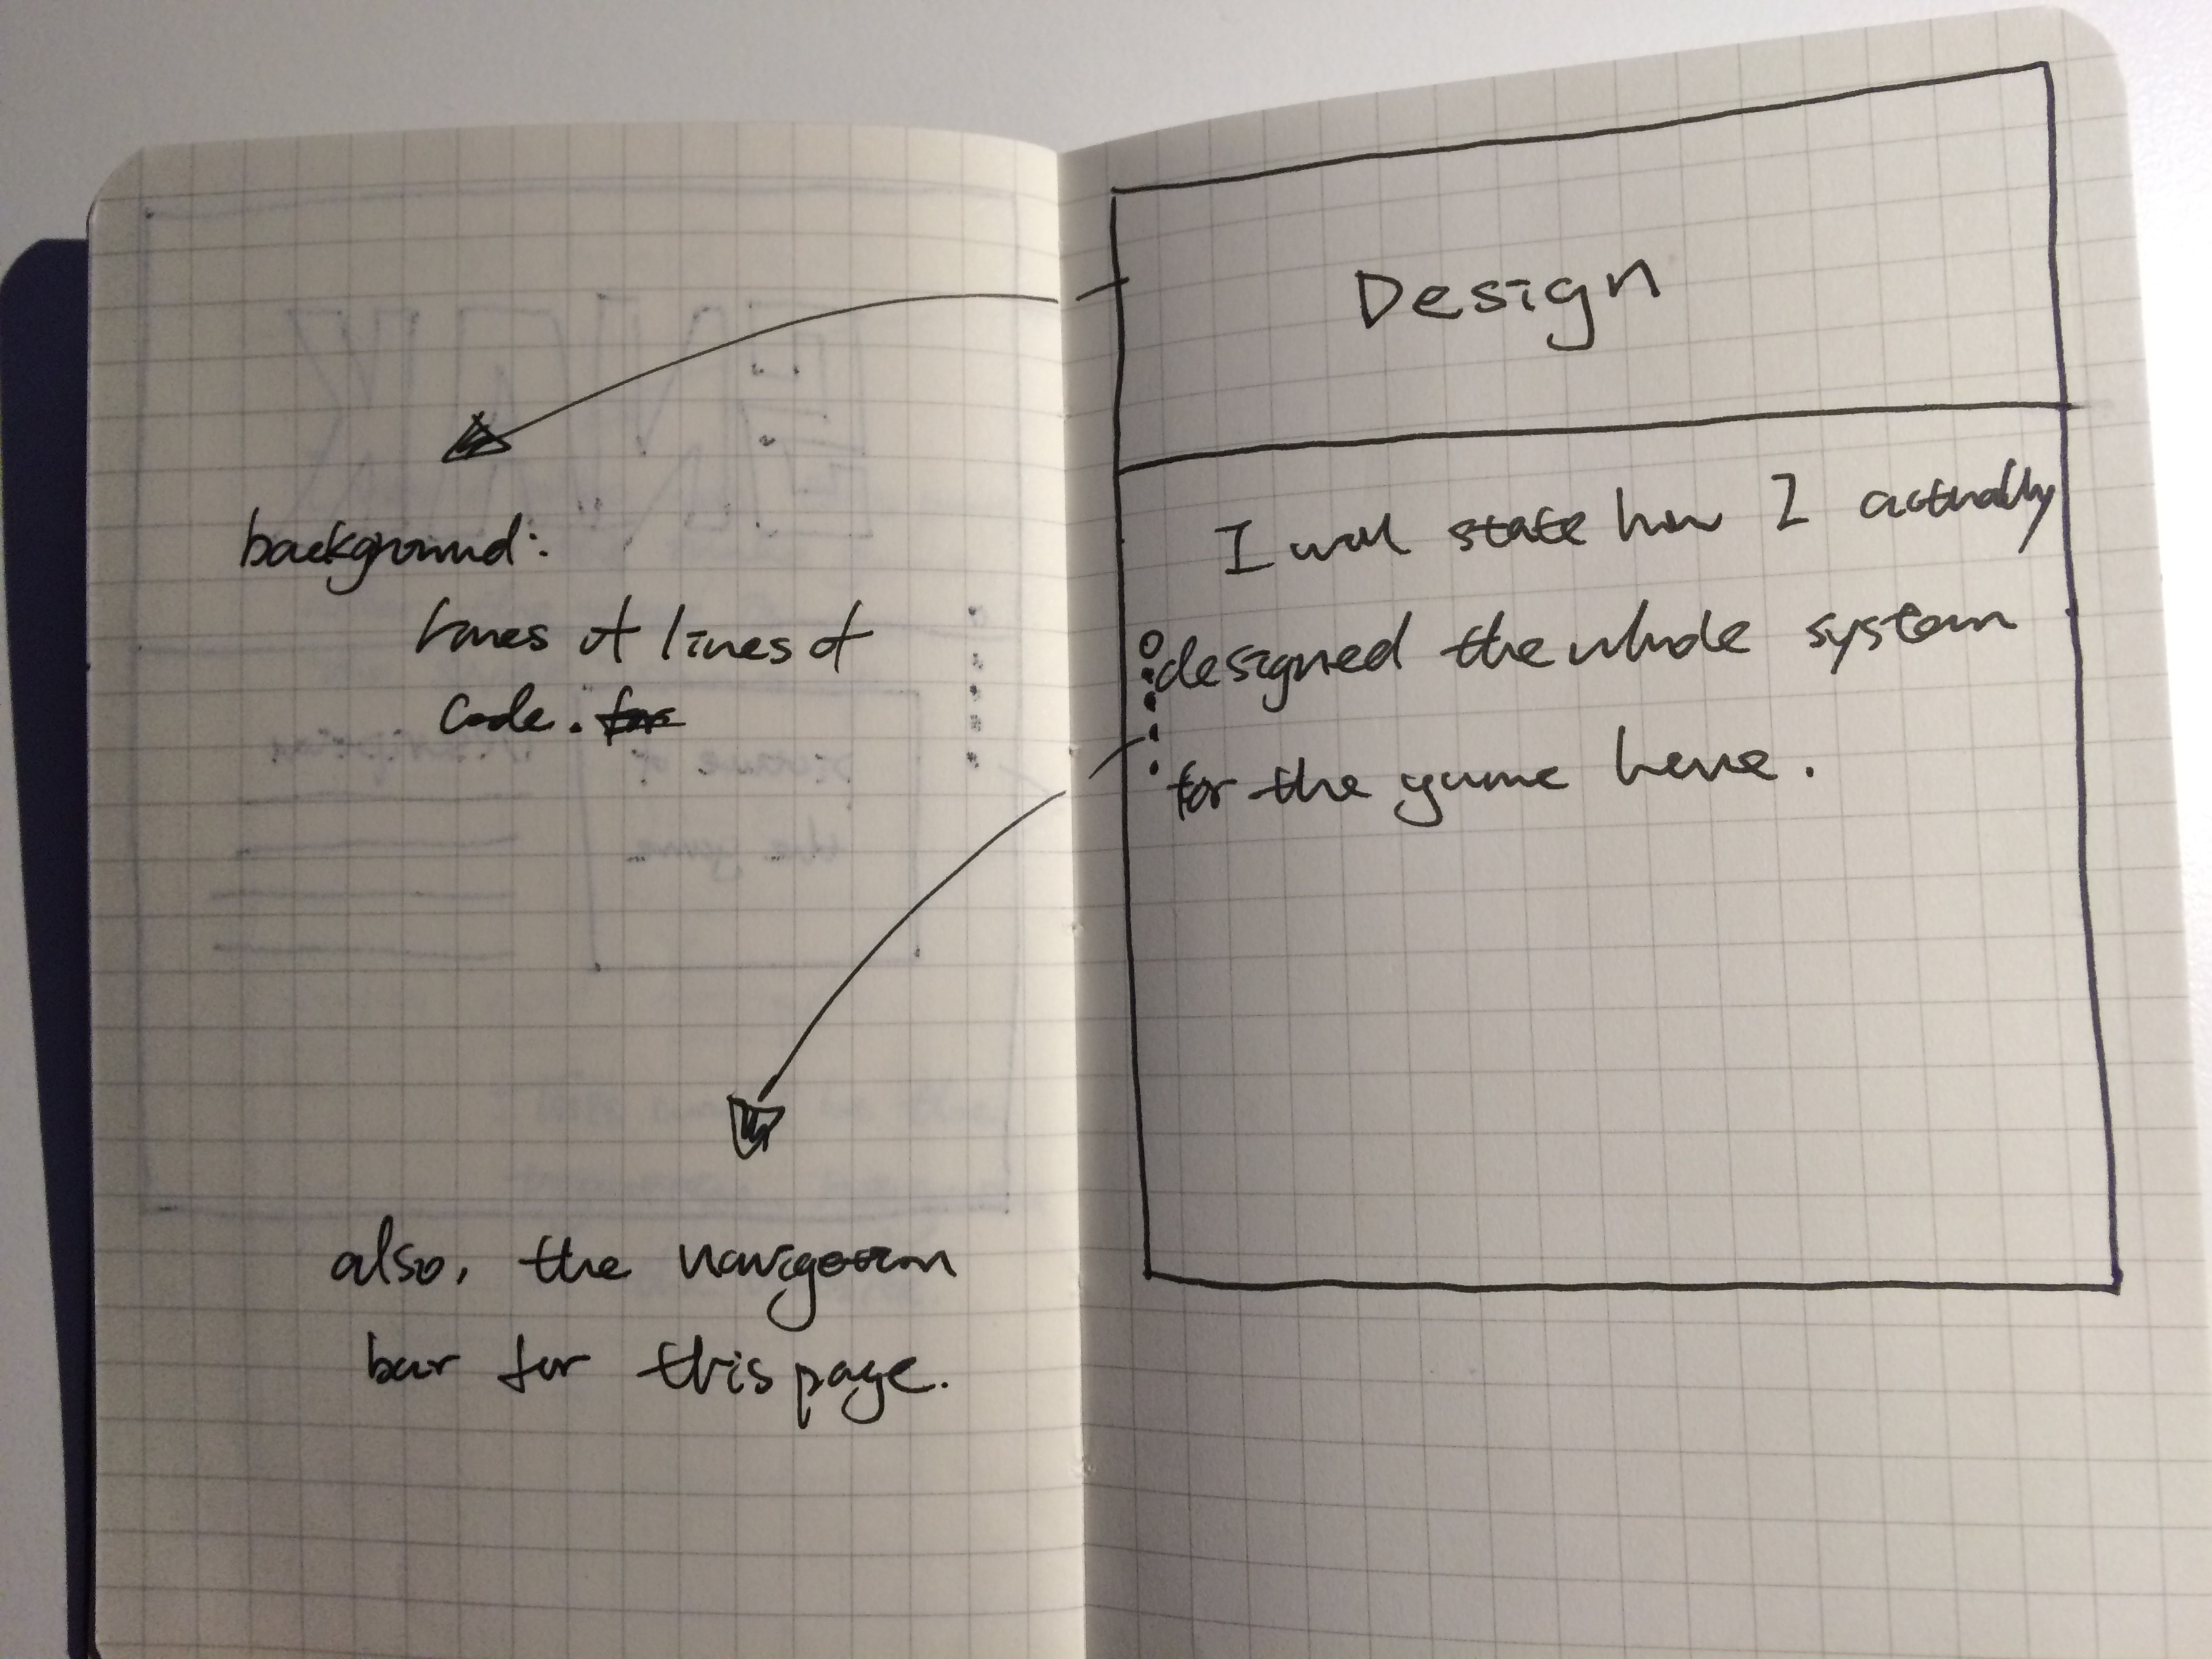 background:
lines of lines of
code. for
also, the navigation
bar for this page.
Design
I will state how I actually
designed the whole system
for the game here.